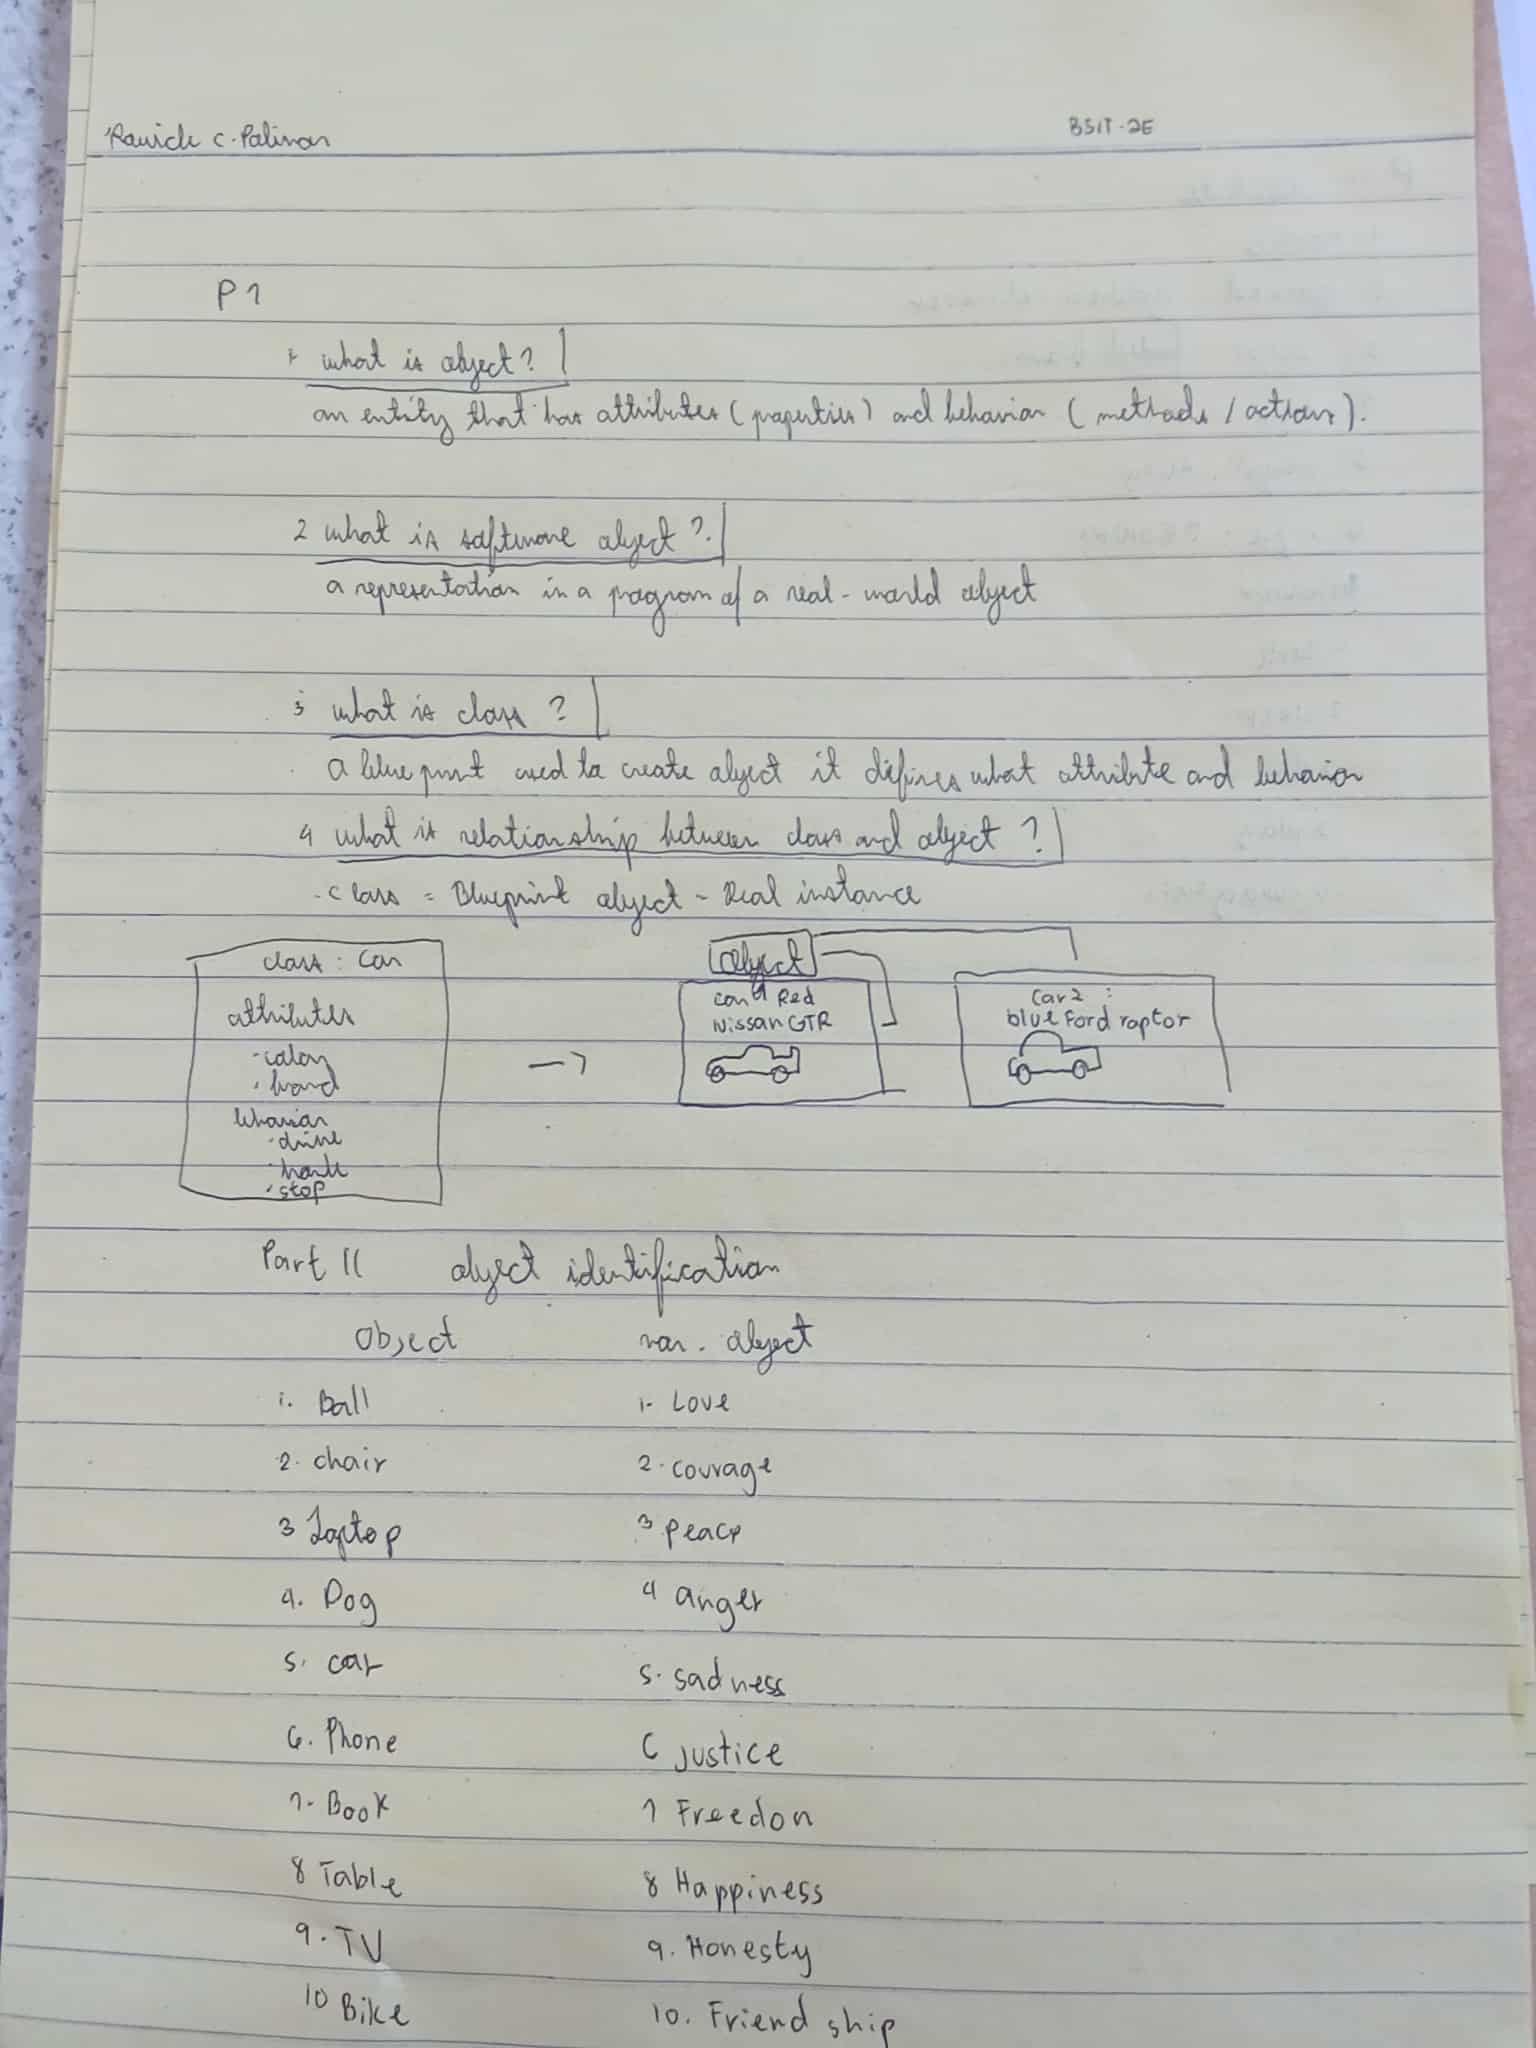 c. Palinar
BSIT-2E
P1
1 what is object?
an entity that has attributes (properties) and behavior (methods / actions).
2 what is software object?
a representation in a program of a real-world object
3 what is class?
a blue print used to create object it defines what attribute and behavior
4 what is relationship between class and object?
- class = Blueprint object - Real instance
class : Car
attributes
- color
- brand
behavior
- drive
- honk
- stop
->
object
car 1 Red
Nissan GTR
Car 2 :
blue Ford raptor
Part II object identification
Object
1. Ball
2. chair
3 Laptop
4. Dog
5. car
6. Phone
7- Book
8 Table
9. TV
10 Bike
object
1- Love
2. courage
3 peace
4 anger
5. sadness
6 justice
7 Freedon
8 Happiness
9. Honesty
10. Friend ship